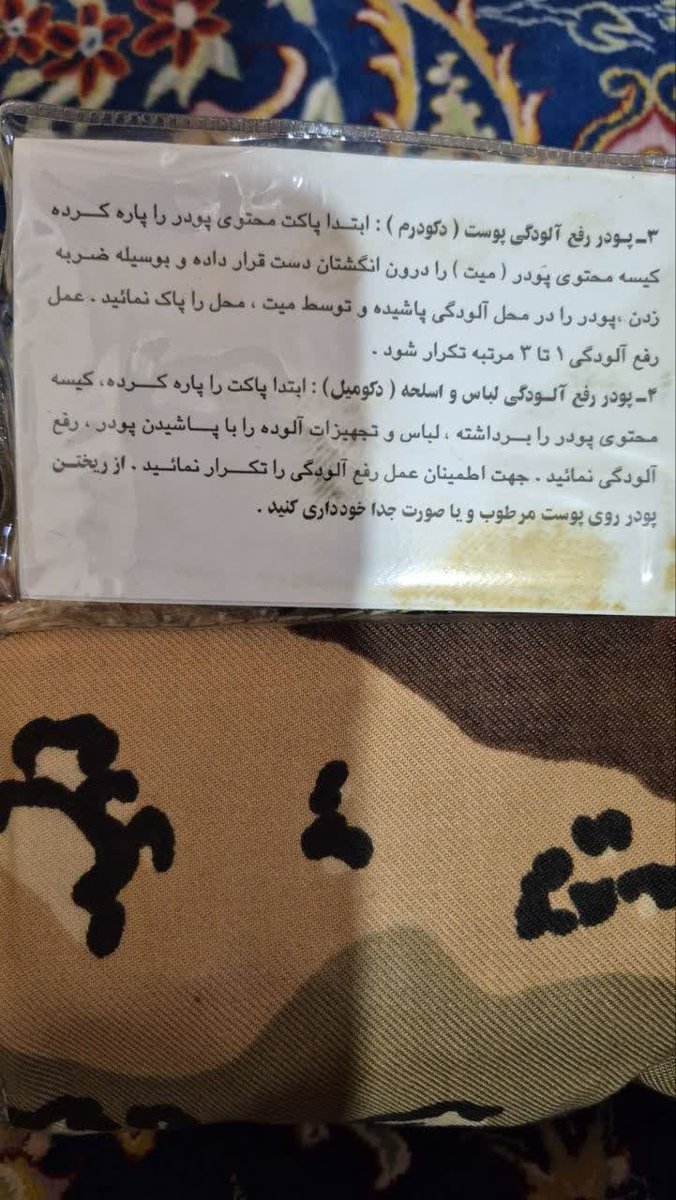 ۳ـ پـودر رفع آلودگی پوست ( دکودرم ) : ابتـدا پاکت محتوی پودر را پاره کـرده
کیسه محتوی پودر ( میت ) را درون انگشتان دست قرار داده و بوسیله ضـربه
زدن ،پودر را در محل آلودگی پاشیده و توسط میت ، محل را پاک نمائید . عمل
رفع آلودگی ۱ تا ۳ مرتبه تکرار شود .
۴ـ پودر رفع آلـودگی لباس و اسلحه ( دکومیل) : ابتدا پاکت را پاره کـرده، کیسه
محتوی پودر را بـرداشته ، لباس و تجهیزات آلوده را با پـاشیدن پودر ، رفع
آلودگی نمائید . جهت اطمینان عمل رفع آلودگی را تکـرار نمائیـد . از ریختـن
پودر روی پوست مرطوب و یا صورت جدا خودداری کنید .